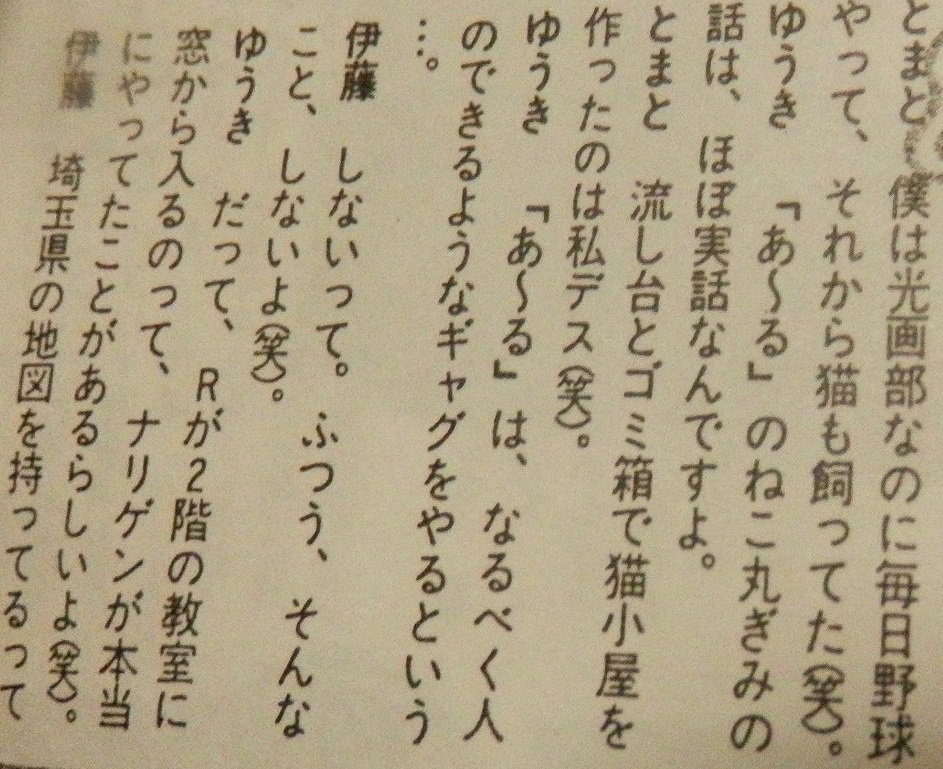 とまと　僕は光画部なのに毎日野球
やって、それから猫も飼ってた（笑）。
ゆうき　『あ〜る』のねこ丸ぎみの
話は、ほぼ実話なんですよ。
とまと　流し台とゴミ箱で猫小屋を
作ったのは私デス（笑）。
ゆうき　『あ〜る』は、なるべく人
のできるようなギャグをやるという
…。
伊藤　しないって。ふつう、そんな
こと、しないよ（笑）。
ゆうき　だって、Rが2階の教室に
窓から入るのって、ナリゲンが本当
にやってたことがあるらしいよ（笑）。
伊藤　埼玉県の地図を持ってるって